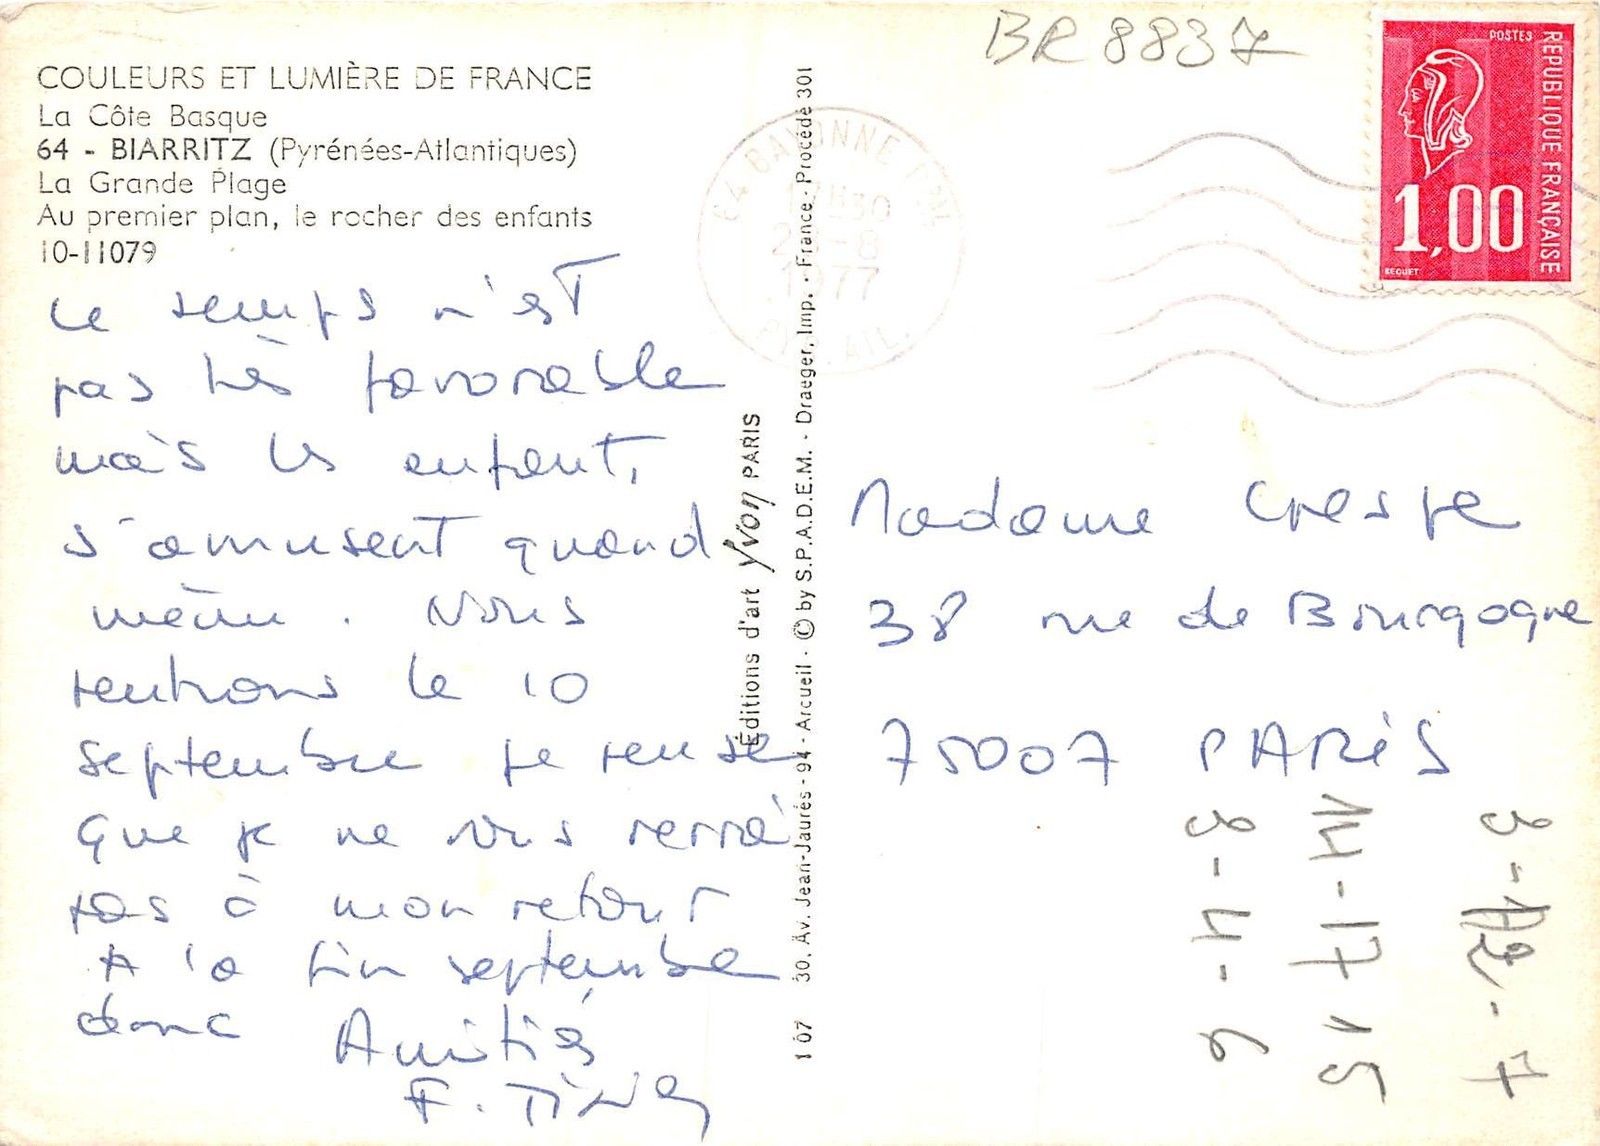 COULEURS ET LUMIÈRE DE FRANCE
La Côte Basque
64 - BIARRITZ (Pyrénées-Atlantiques)
La Grande Plage
Au premier plan, le rocher des enfants
10-11079
Le temps n'est
pas très favorable
mais les enfants
s'amusent quand
même. Nous
rentrons le 10
septembre je pense
que je ne vous verrai
pas à mon retour
A la fin septembre
donc Amitiés
F.
Éditions d'art Yvon PARIS
107 30, Av. Jean-Jaurès - 94 - Arcueil - © by S.P.A.D.E.M. - Draeger, Imp. - France - Procédé 301
BR 8837
64 BAYONNE
17H30
-8
1977
POSTES
REPUBLIQUE FRANÇAISE
1,00
BEQUET
Madame Crespe
38 rue de Bourgogne
75007 PARIS
3-4-6
14-17 15
3-12-7